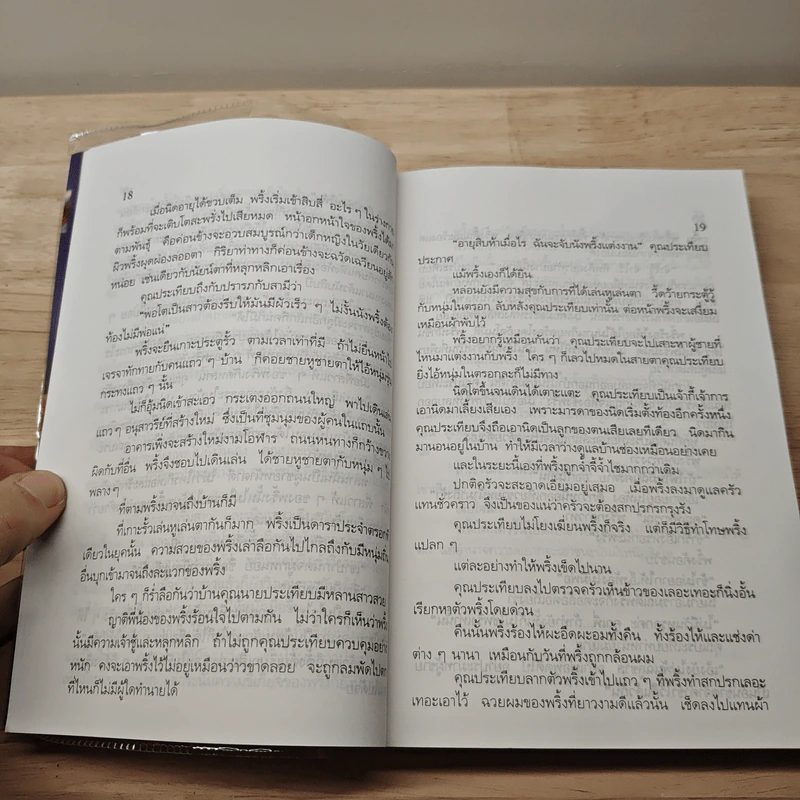 18
เมื่อนิดอายุได้ขวบเต็ม พริ้งเริ่มเข้าสิบสี่ อะไร ๆ ในร่างกาย
ก็พร้อมที่จะเติบโตสะพรั่งไปเสียหมด หน้าอกหน้าใจของพริ้งได้
ตามพันธุ์ คือค่อนข้างจะอวบสมบูรณ์กว่าเด็กหญิงในวัยเดียวกัน
ผิวพริ้งผุดผ่องลออตา กิริยาท่าทางก็ค่อนข้างจะฉวัดเฉวียนอยู่สัก
หน่อย เช่นเดียวกับนัยน์ตาที่หลุกหลิกเอาเรื่อง
คุณประเทียบถึงกับปรารภกับสามีว่า
"พอโตเป็นสาวต้องรีบให้มันมีผัวเร็ว ๆ ไม่งั้นนังพริ้งต้อง
ท้องไม่มีพ่อแน่"
พริ้งจะยืนเกาะประตูรั้ว ตามเวลาเท่าที่มี ถ้าไม่ยืนหน้า
เจรจาทักทายกับคนแถว ๆ บ้าน ก็คอยชายหูชายตาให้ไอ้หนุ่ม
กระทงแถว ๆ นั้น
ไม่ก็อุ้มนิดเข้าสะเอว กระเตงออกถนนใหญ่ พาไปเดินเล่น
แถว ๆ อนุสาวรีย์ที่สร้างใหม่ ซึ่งเป็นที่ชุมนุมของผู้คนในแถบนั้น
อาคารเพิ่งจะสร้างใหม่งามโอฬาร ถนนหนทางก็กว้างขวาง
ผิดกับที่อื่น พริ้งจึงชอบไปเดินเล่น ได้ชายหูชายตากับหนุ่ม ๆ ไป
พลาง ๆ
ที่ตามพริ้งมาจนถึงบ้านก็มี
ที่เกาะรั้วเล่นหูเล่นตากันก็มาก พริ้งเป็นดาราประจำตรอกที่
เดียวในยุคนั้น ความสวยของพริ้งเล่าลือกันไปไกลถึงกับมีหนุ่มถิ่น
อื่นบุกเข้ามาจนถึงละแวกของพริ้ง
ใคร ๆ ก็ร่ำลือกันว่าบ้านคุณนายประเทียบมีหลานสาวสวย
ญาติพี่น้องของพริ้งร้อนใจไปตามกัน ไม่ว่าใครก็เห็นว่าพริ้ง
นั้นมีความเจ้าชู้และหลุกหลิก ถ้าไม่ถูกคุณประเทียบควบคุมอย่าง
หนัก คงจะเอาพริ้งไว้ไม่อยู่เหมือนว่าวขาดลอย จะถูกลมพัดไปตก
ที่ไหนก็ไม่มีผู้ใดทำนายได้
19
"อายุสิบห้าเมื่อไร ฉันจะจับนังพริ้งแต่งงาน" คุณประเทียบ
ประกาศ
แม้พริ้งเองก็ได้ยิน
หล่อนยังมีความสุขกับการที่ได้เล่นหูเล่นตา วี้ดว้ายกระตู้วู้
กับหนุ่มในตรอก ลับหลังคุณประเทียบเท่านั้น ต่อหน้าพริ้งจะเสงี่ยม
เหมือนผ้าพับไว้
พริ้งอยากรู้เหมือนกันว่า คุณประเทียบจะไปเสาะหาผู้ชายที่
ไหนมาแต่งงานกับพริ้ง ใคร ๆ ก็เลวไปหมดในสายตาคุณประเทียบ
ยิ่งไอ้หนุ่มในตรอกละก็ไม่มีทาง
นิดโตขึ้นจนเดินได้เตาะแตะ คุณประเทียบเป็นเจ้ากี้เจ้าการ
เอานิดมาเลี้ยงเสียเอง เพราะมารดาของนิดเริ่มตั้งท้องอีกครั้งหนึ่ง
คุณประเทียบจึงถือเอานิดเป็นลูกของตนเสียเลยทีเดียว นิดมากิน
มานอนอยู่ในบ้าน ทำให้มีเวลาว่างดูแลบ้านช่องเหมือนอย่างเคย
และในระยะนี้เองที่พริ้งถูกจ้ำจี้จ้ำไชมากกว่าเดิม
ปกติครัวจะสะอาดเอี่ยมอยู่เสมอ เมื่อพริ้งลงมาดูแลครัว
แทนชั่วคราว จึงเป็นของแน่ว่าครัวจะต้องสกปรกรกรุงรัง
คุณประเทียบไม่โยงเฆี่ยนพริ้งก็จริง แต่ก็มีวิธีทำโทษพริ้ง
แปลก ๆ
แต่ละอย่างทำให้พริ้งเข็ดไปนาน
คุณประเทียบลงไปตรวจครัวเห็นข้าวของเลอะเทอะก็นิ่งอั้น
เรียกหาตัวพริ้งโดยด่วน
คืนนั้นพริ้งร้องไห้ผะอืดผะอมทั้งคืน ทั้งร้องไห้และแช่งด่า
ต่าง ๆ นานา เหมือนกับวันที่พริ้งถูกกล้อนผม
คุณประเทียบลากตัวพริ้งเข้าไปแถว ๆ ที่พริ้งทำสกปรกเลอะ
เทอะเอาไว้ ฉวยผมของพริ้งที่ยาวงามดีแล้วนั้น เช็ดลงไปแทนผ้า